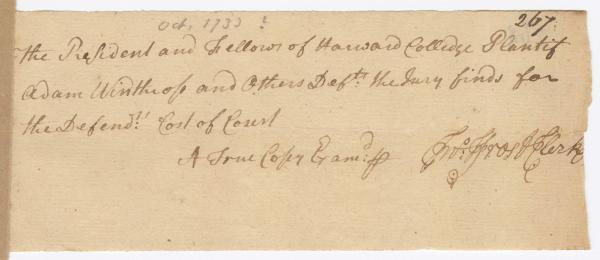 Oct, 1733 !
267.
the President and Fellows of Harward Colledge Plantif
Adam Winthrop and Others Def.ts the Jury finds for
the Defend.ts Cost of Court
A True Copy Exam.d p
Jno. Ffrost Clerk